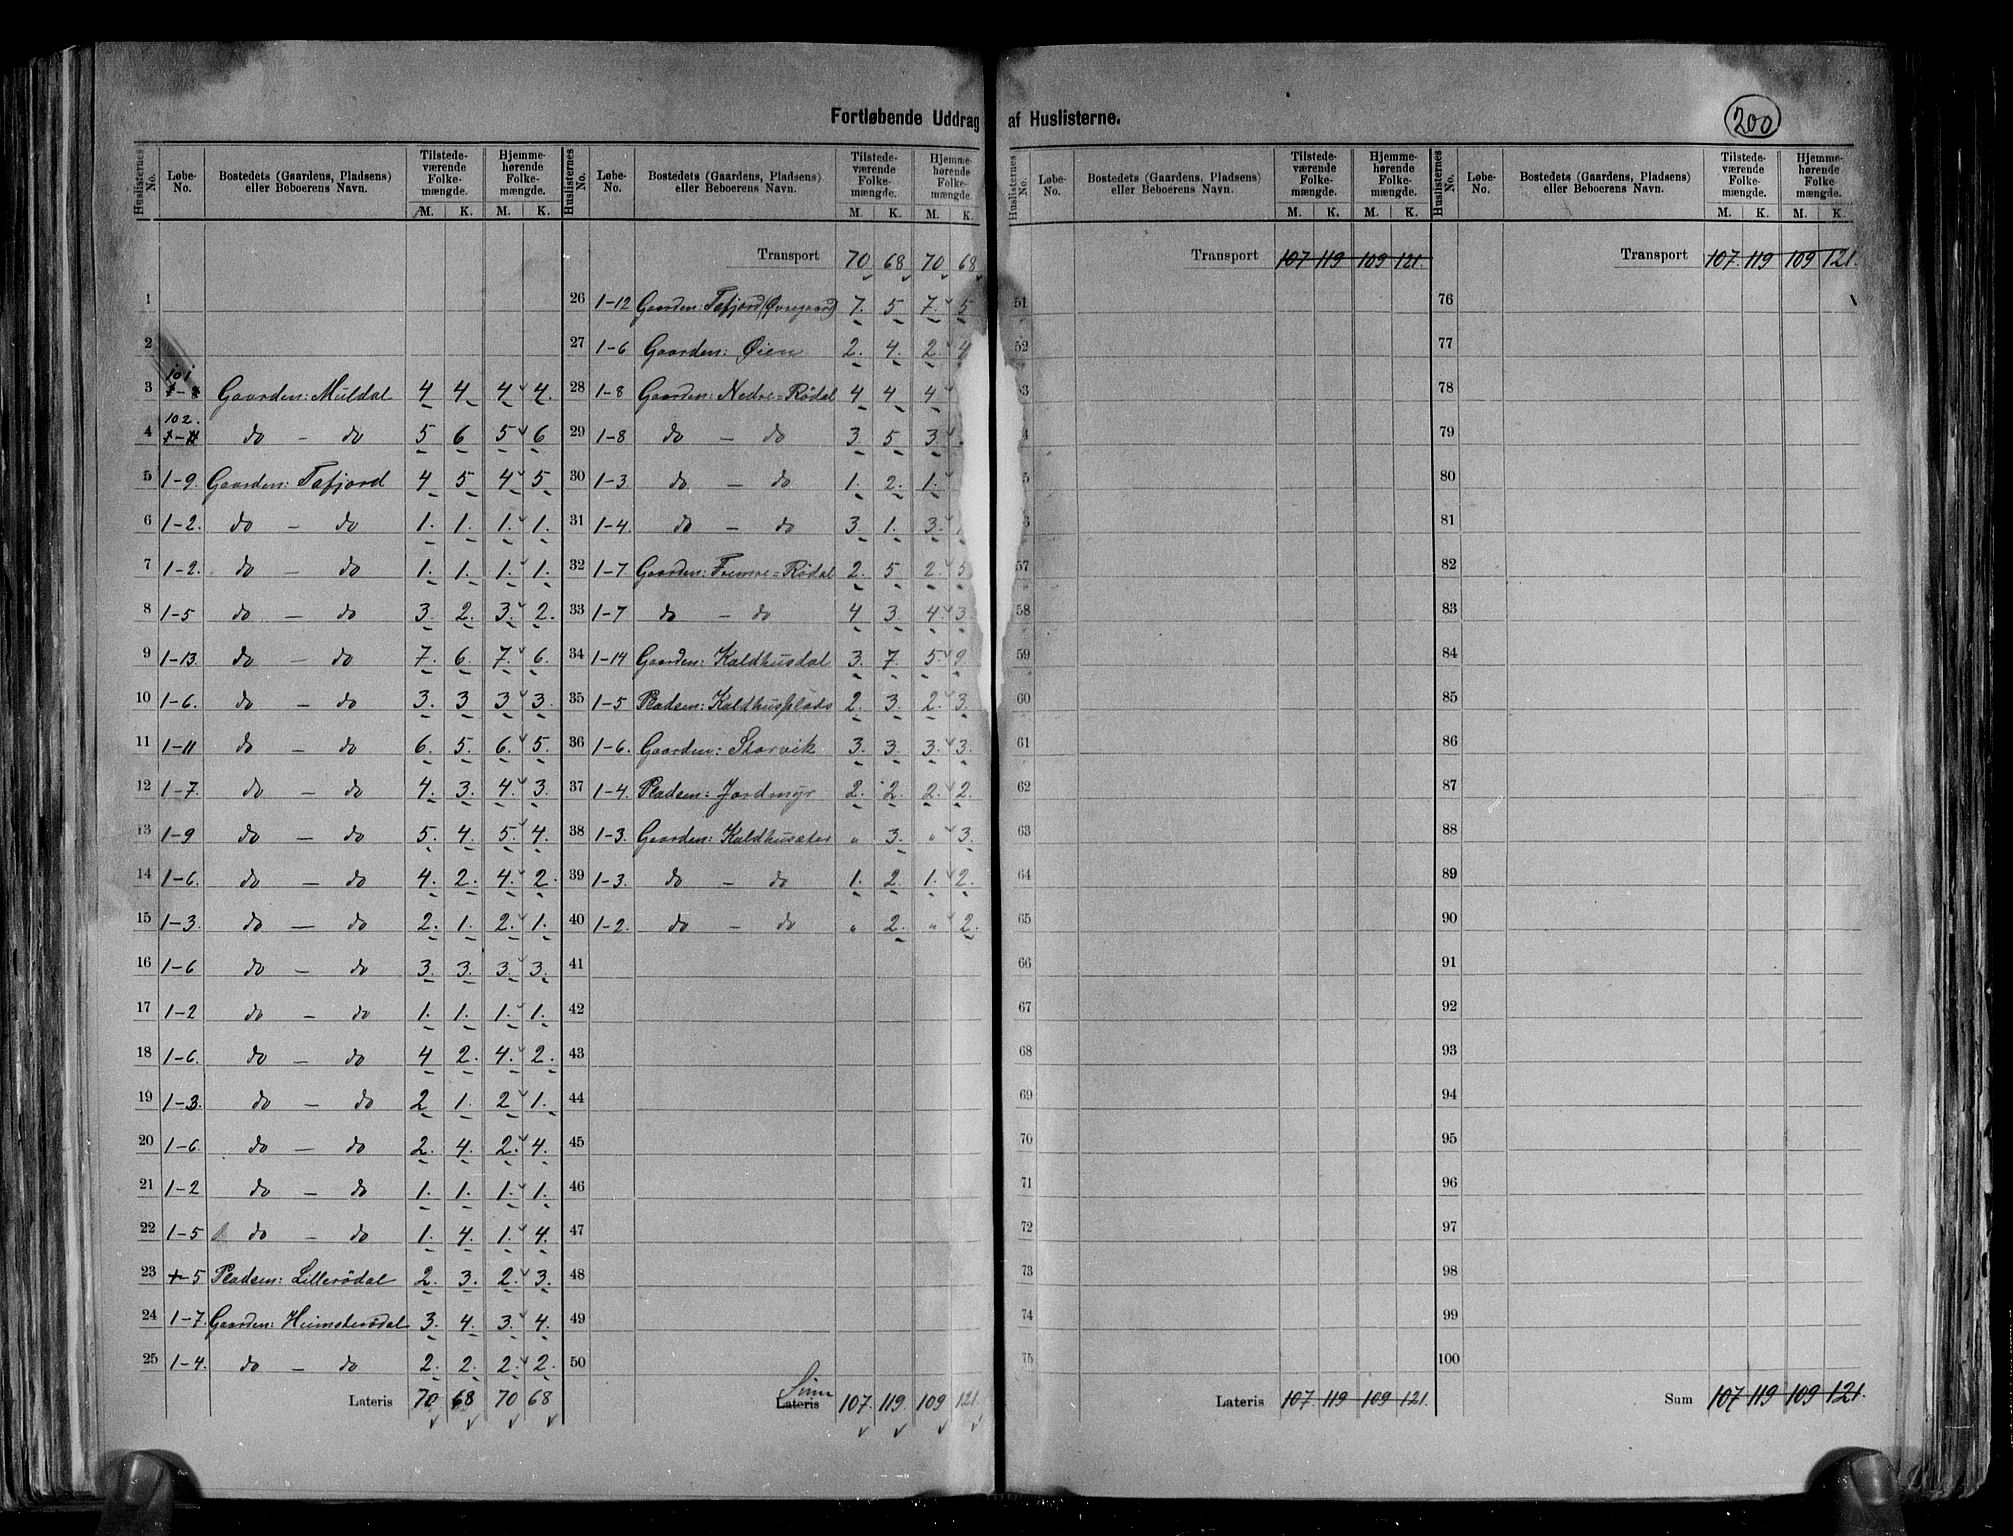 Fortløbende Uddrag af Huslisterne.
200
Huslisternes No. Løbe-No. Bostedets (Gaardens, Pladsens) eller Beboerens Navn. Tilstedeværende Folkemængde. M. K. Hjemmehørende Folkemængde. M. K.
1
2
3 101 Gaarden: Muldal 4 4 4 4.
4 102. do – do 5 6 5 6
5 1-9. Gaarden: Tafjord 4 5 4 5
6 1-2. do – do 1. 1. 1. 1.
7 1-2. do – do 1. 1. 1. 1.
8 1-5 do – do 3. 2. 3. 2.
9 1-13. do – do 7. 6. 7. 6.
10 1-6. do – do 3. 3 3 3.
11 1-11 do – do 6. 5. 6. 5.
12 1-7. do – do 4. 3. 4. 3.
13 1-9 do – do 5. 4. 5. 4.
14 1-6. do – do 4. 2. 4. 2.
15 1-3. do – do 2. 1. 2. 1.
16 1-6 do – do 3. 3. 3. 3.
17 1-2 do – do 1. 1. 1. 1.
18 1-6. do – do 4 2. 4. 2.
19 1-3. do – do 2 1. 2 1.
20 1-6. do – do 2. 4. 2. 4.
21 1-2 do – do 1. 1. 1. 1.
22 1-5 do – do 1. 4. 1. 4.
23 1-5 Pladsen: Lillerödal 2. 3. 2. 3.
24 1-7. Gaarden: Heimsterödal 3. 4. 3. 4.
25 1-4. do – do 2. 2. 2. 2.
Lateris 70 68 70 68
Huslisternes No. Løbe-No. Bostedets (Gaardens, Pladsens) eller Beboerens Navn. Tilstedeværende Folkemængde. M. K. Hjemmehørende Folkemængde. M. K.
Transport 70 68 70 68
26 1-12 Gaarden: Tafjord (Øvregaard) 7. 5 7. 5
27 1-6 Gaarden: Øien 2. 4. 2. 4
28 1-8 Gaarden: Nedre=Rödal 4 4 4
29 1-8 do – do 3. 5 3.
30 1-3. do – do 1. 2. 1.
31 1-4. do – do 3. 1. 3.
32 1-7 Gaarden: Fremre=Rödal 2. 5 2. 5
33 1-7 do – do 4 3. 4. 3.
34 1-14 Gaarden: Kaldhusdal 3. 7. 5. 9.
35 1-5 Pladsen: Kaldhusplads 2. 3. 2. 3.
36 1-6. Gaarden: Storvik 3. 3. 3. 3.
37 1-4. Pladsen: Jordmyr 2. 2. 2. 2.
38 1-3. Gaarden: Kaldhusæter " 3. " 3.
39 1-3. do – do 1. 2. 1. 2.
40 1-2. do – do " 2. " 2.
41
42
43
44
45
46
47
48
49
50
Sum Lateris 107. 119. 109. 121.
Huslisternes No. Løbe-No. Bostedets (Gaardens, Pladsens) eller Beboerens Navn. Tilstedeværende Folkemængde. M. K. Hjemmehørende Folkemængde. M. K.
Transport 107 119 109 121.
51
52
53
57
58
59
60
61
62
63
64
65
66
67
68
69
70
71
72
73
74
75
Lateris 107. 119 109 121.
Huslisternes No. Løbe-No. Bostedets (Gaardens, Pladsens) eller Beboerens Navn. Tilstedeværende Folkemængde. M. K. Hjemmehørende Folkemængde. M. K.
Transport 107. 119 109 121.
76
77
78
79
80
81
82
83
84
85
86
87
88
89
90
91
92
93
94
95
96
97
98
99
100
Sum 107 119 109 121.